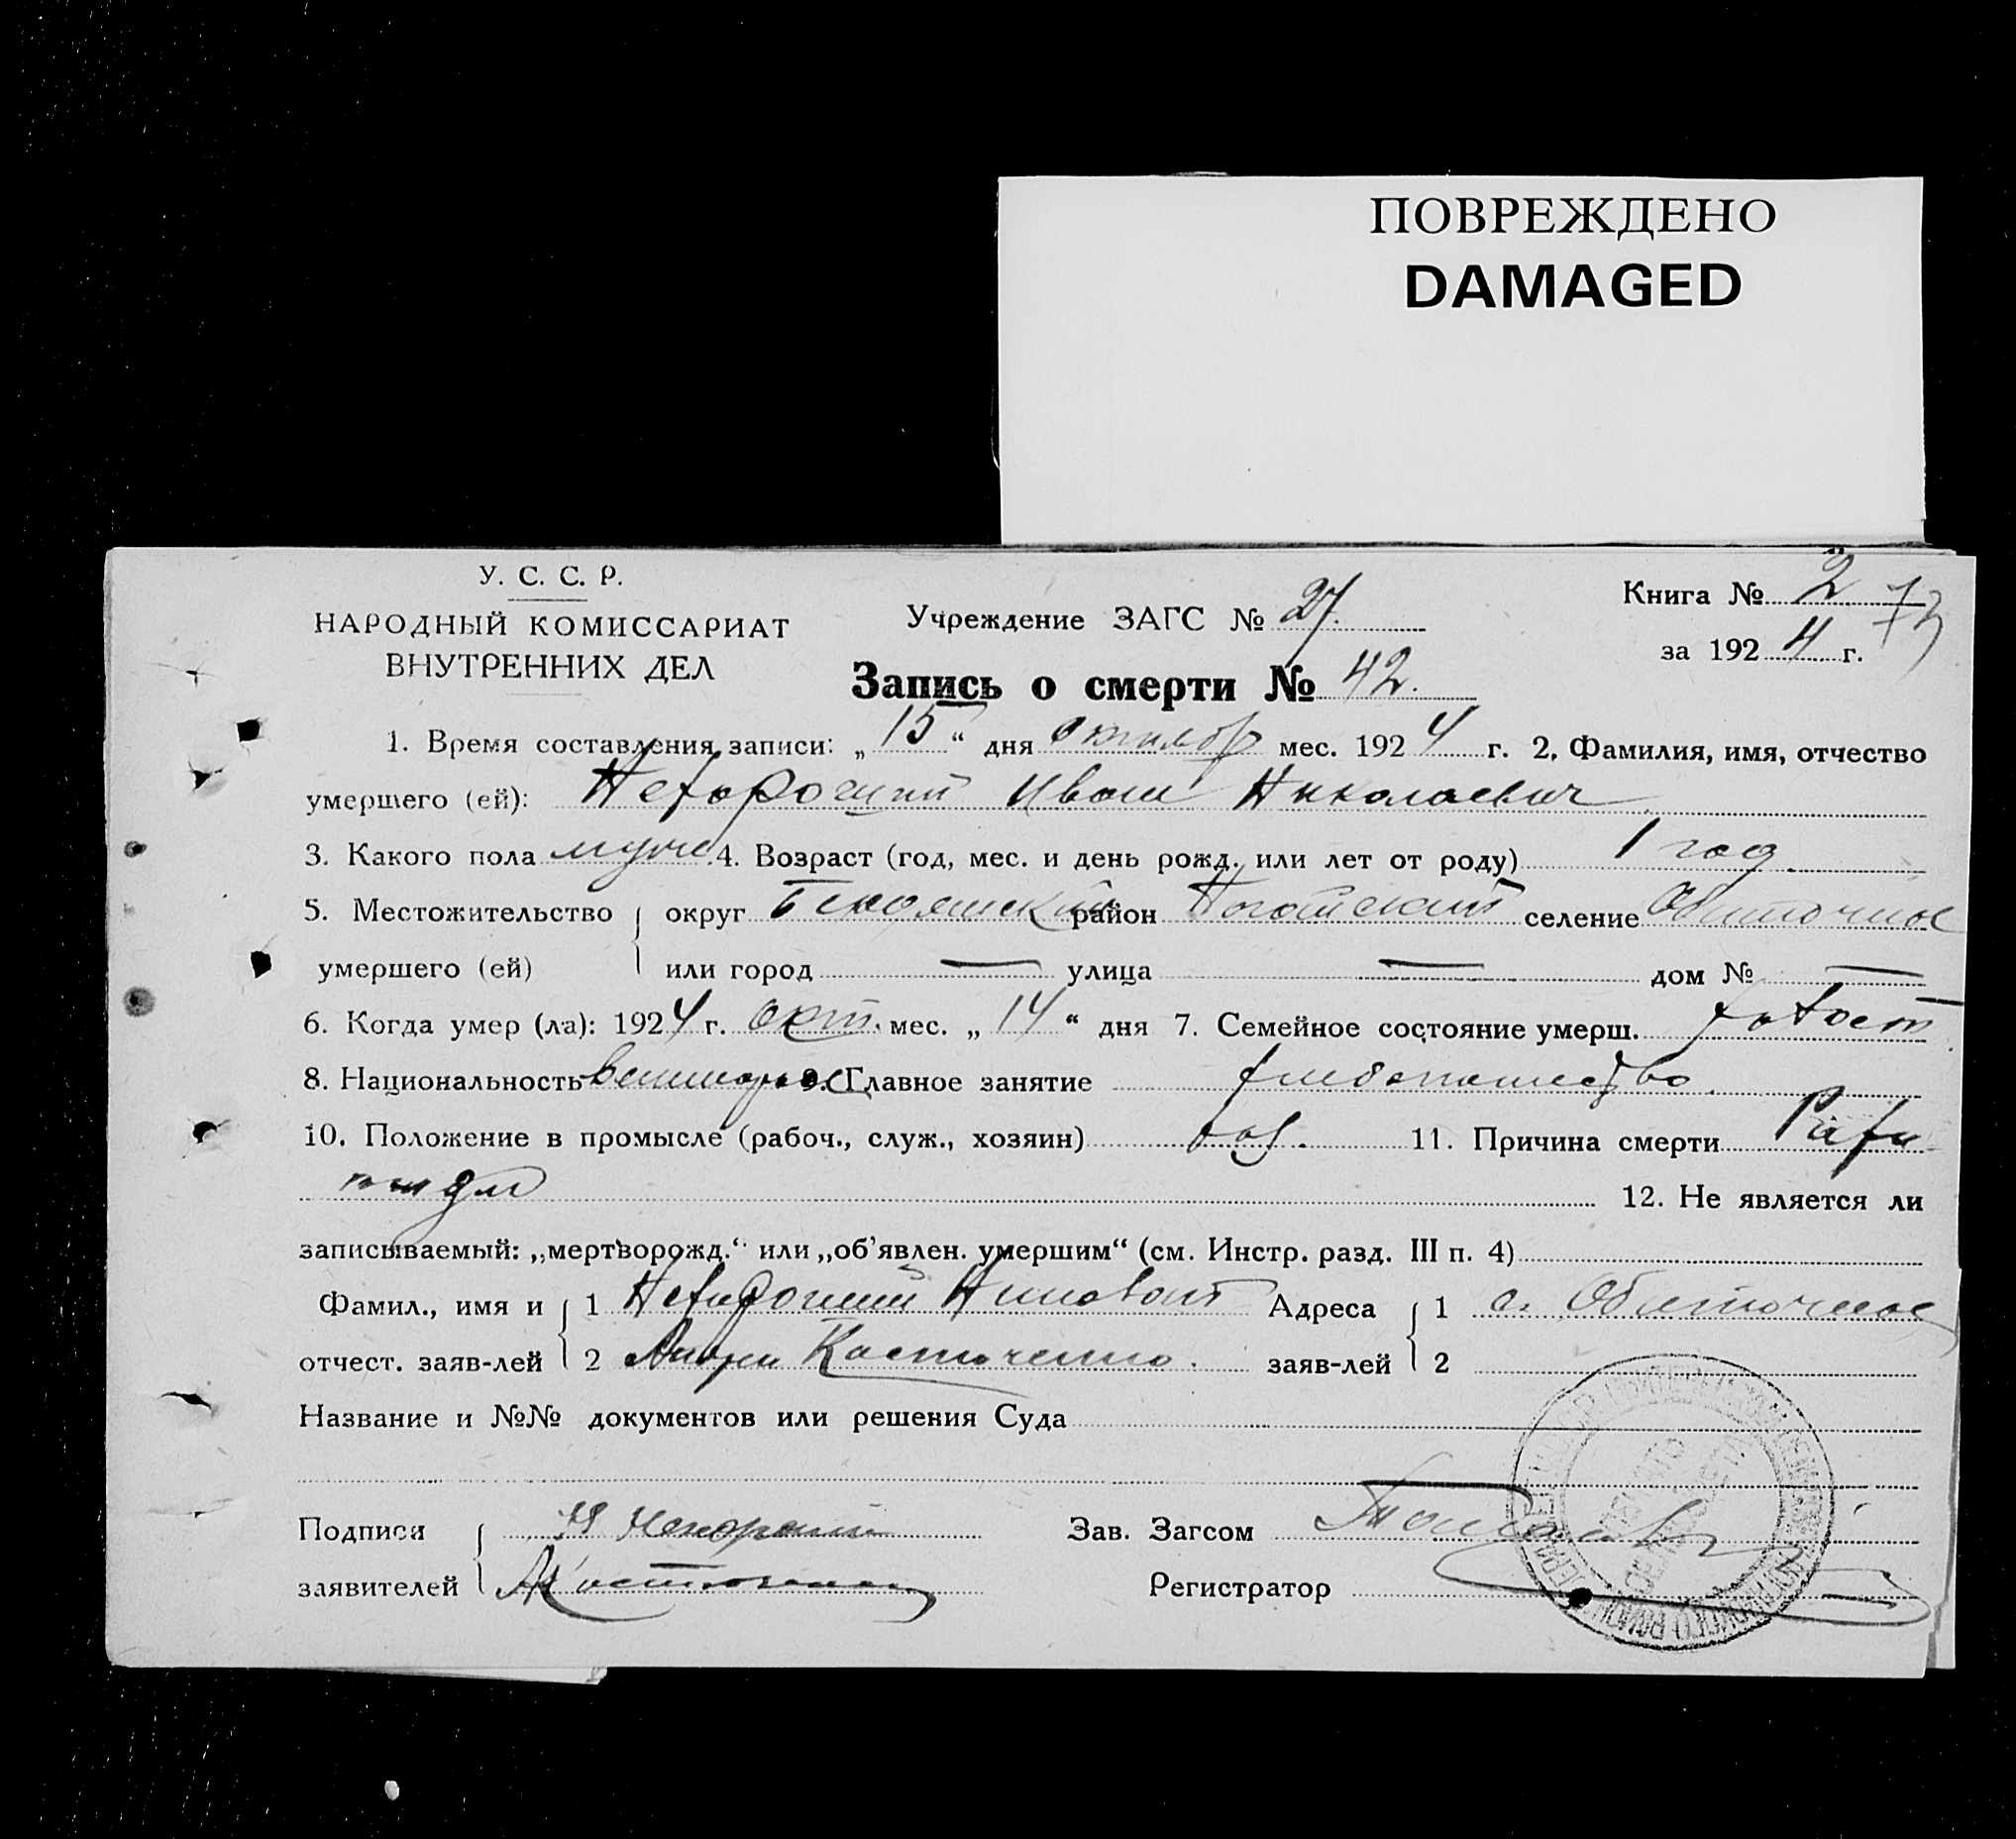 ПОВРЕЖДЕНО
DAMAGED
У. С. С. Р.
НАРОДНЫЙ КОМИССАРИАТ
ВНУТРЕННИХ ДЕЛ
Учреждение ЗАГС № 27.
Книга № 2 73
за 1924 г.
Запись о смерти № 42.
1. Время составления записи: „15“ дня октябр мес. 1924 г. 2. Фамилия, имя, отчество
умершего (ей): Иван Николаевич
3. Какого пола муж 4. Возраст (год, мес. и день рожд. или лет от роду) 1 год.
5. Местожительство округ район селение Обиточное
умершего (ей) или город — улица — дом № —
6. Когда умер (ла): 1924 г. окт. мес. „14“ дня 7. Семейное состояние умерш. холост
8. Национальность 9. Главное занятие хлебопашество.
10. Положение в промысле (рабоч., служ., хозяин) хоз. 11. Причина смерти
12. Не является ли
записываемый: „мертворожд.“ или „об’явлен. умершим“ (см. Инстр. разд. III п. 4)
Фамил., имя и 1 Адреса 1 с. Обиточное
отчест. заяв-лей 2 Костюченко. заяв-лей 2
Название и №№ документов или решения Суда
Подписи
Зав. Загсом
заявителей
Регистратор